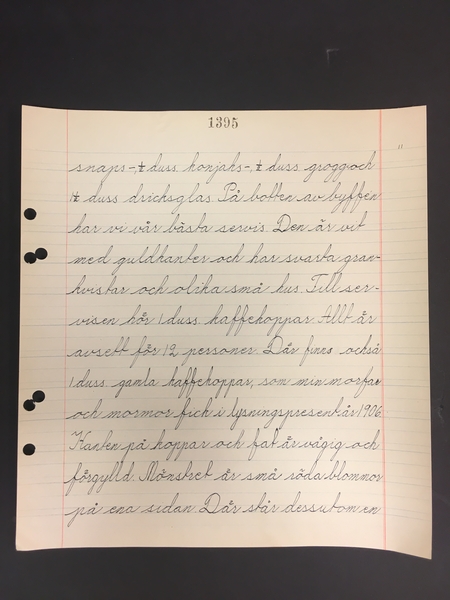 1395
"
snaps-, ½ duss. konjaks-, ½ duss. grogg och
1½ duss dricksglas. På botten av byffén
har vi vår bästa servis. Den är vit
med guldkanter och har svarta gran-
kvistar och olika små hus. Till ser-
visen hör 1 duss. kaffekoppar. Allt är
avsett för 12 personer. Där finns också
1 duss. gamla kaffekoppar, som min morfar
och mormor fick i lysningspresent år 1906.
Kanten på koppar och fat är vågig och
förgylld. Mönstret är små röda blommor
på ena sidan. Där står dessutom en